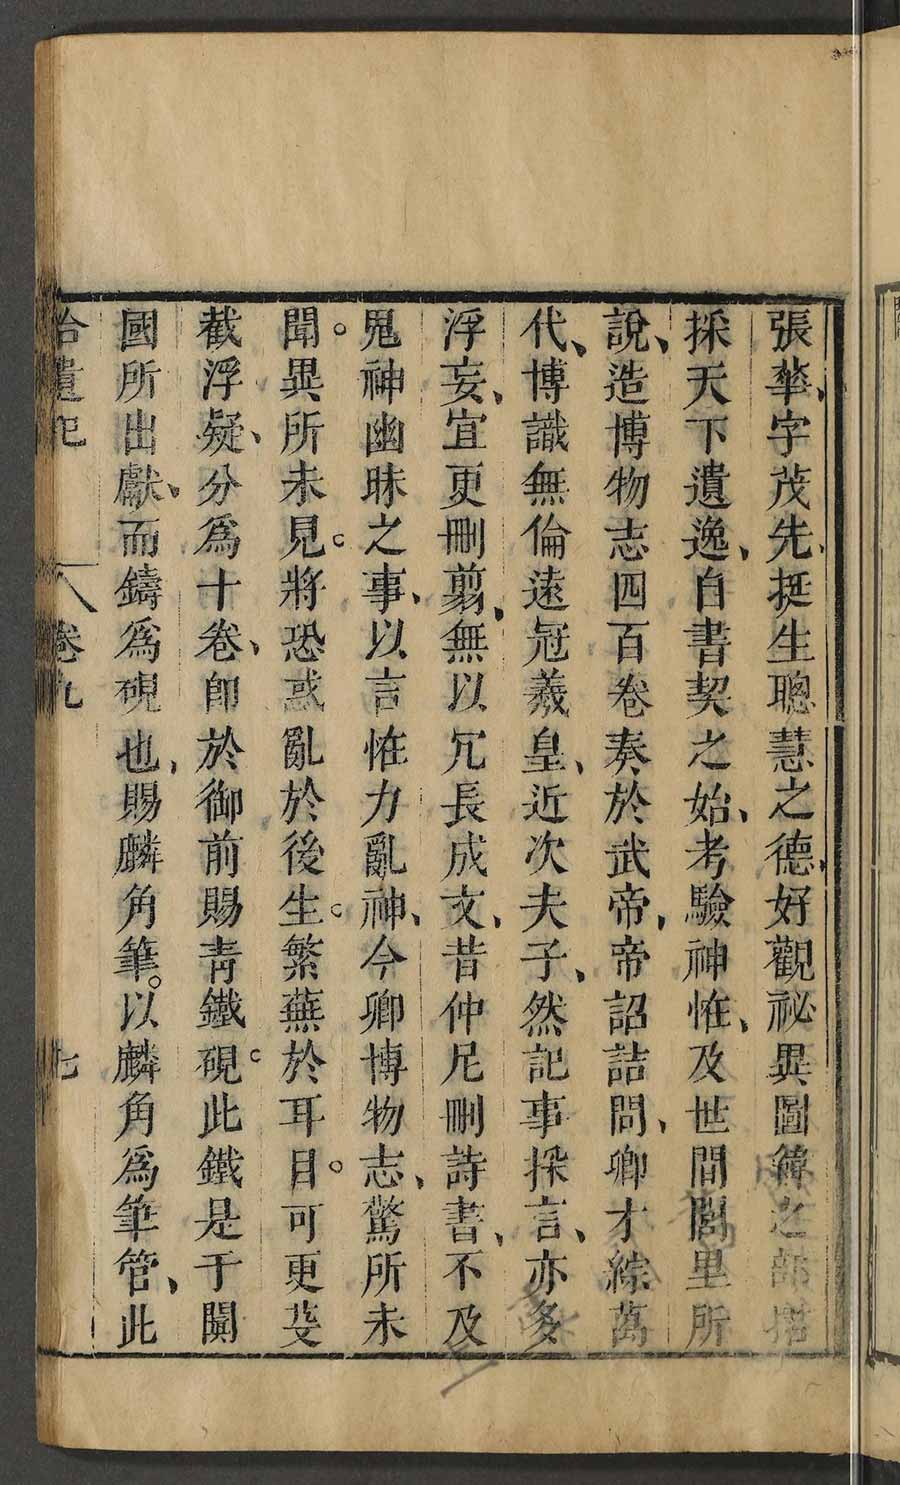 張華、字茂先、挺生聰慧之德、好觀祕異圖緯之部捃
採天下遺逸、自書契之始、考驗神恠、及世間閭里所
說、造博物志四百卷奏於武帝、帝詔詰問、卿才綜萬
代、博識無倫遠冠羲皇、近次夫子、然記事採言、亦多
浮妄、宜更刪翦、無以冗長成文、昔仲尼刪詩書、不及
鬼神幽昧之事、以言恠力亂神、今卿博物志、驚所未
聞。異所未見。將恐惑亂於後生。繁蕪於耳目。可更芟
截浮疑、分爲十卷、卽於御前賜靑鐵硯。此鐵是于闐
國所出獻、而鑄爲硯也、賜麟角筆。以麟角爲筆管、此
拾遺記 卷九 七